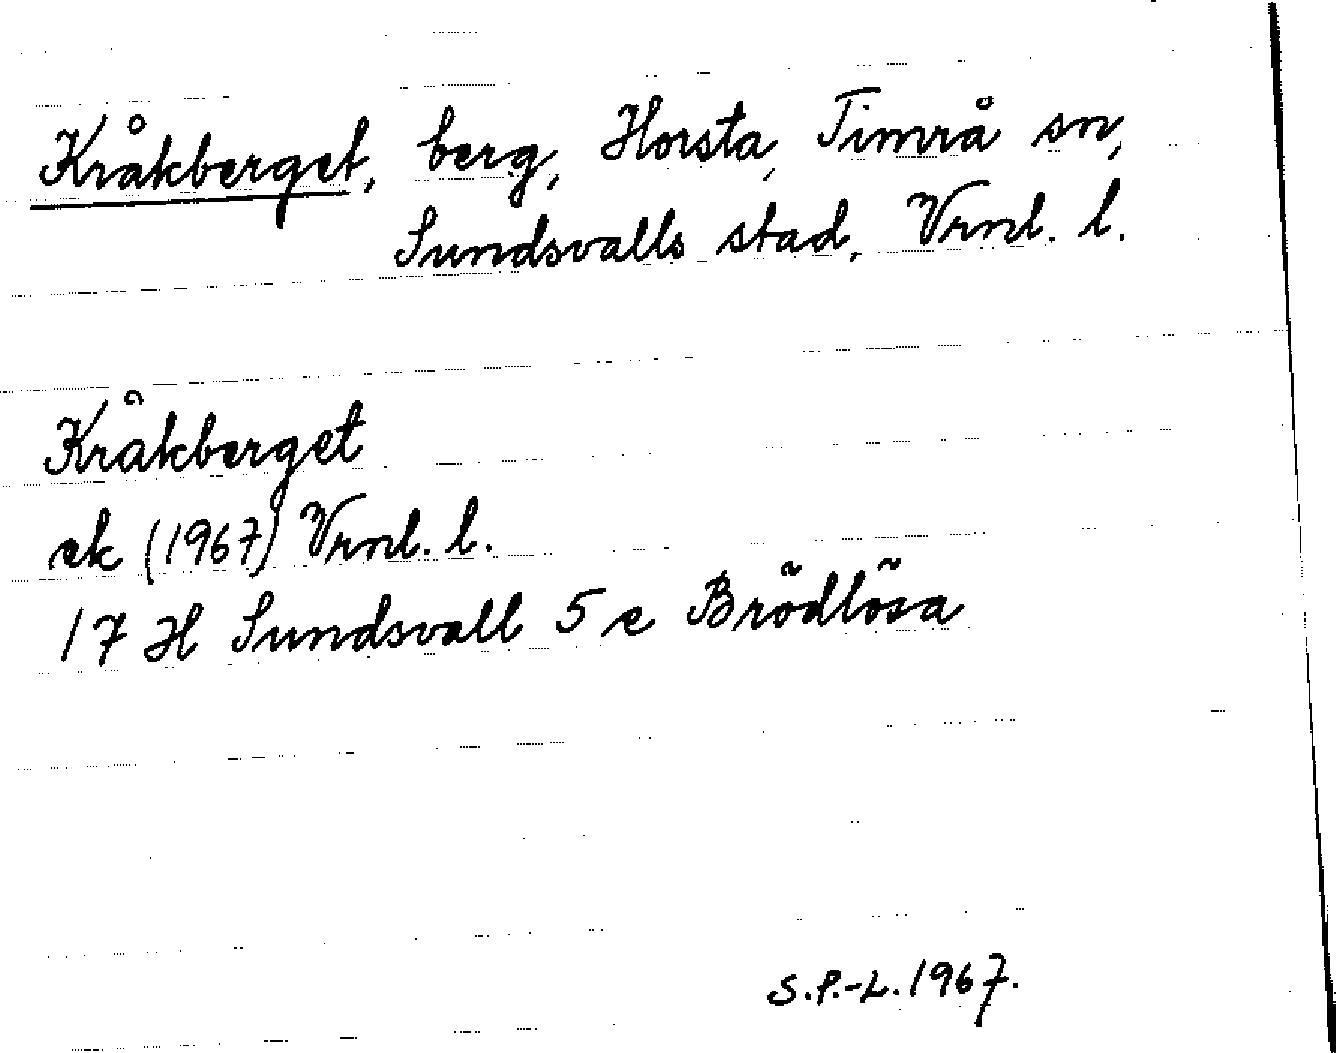 Kråkberget, berg, Horsta, Timrå sn,
Sundsvalls stad, Vrnl. l.
Kråkberget
ek (1967) Vrnl. l.
17 H Sundsvall 5 e Brödlösa
S.P.-L. 1967.